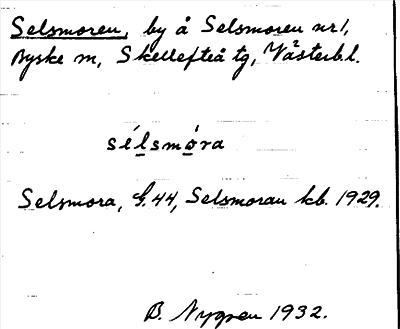 Selsmoren, by å Selsmoren nr 1,
Byske sn, Skellefteå tg, Västerb.l.
sélsmóra
Selsmora, G.44, Selsmoran kb. 1929.
B. Nygren 1932.